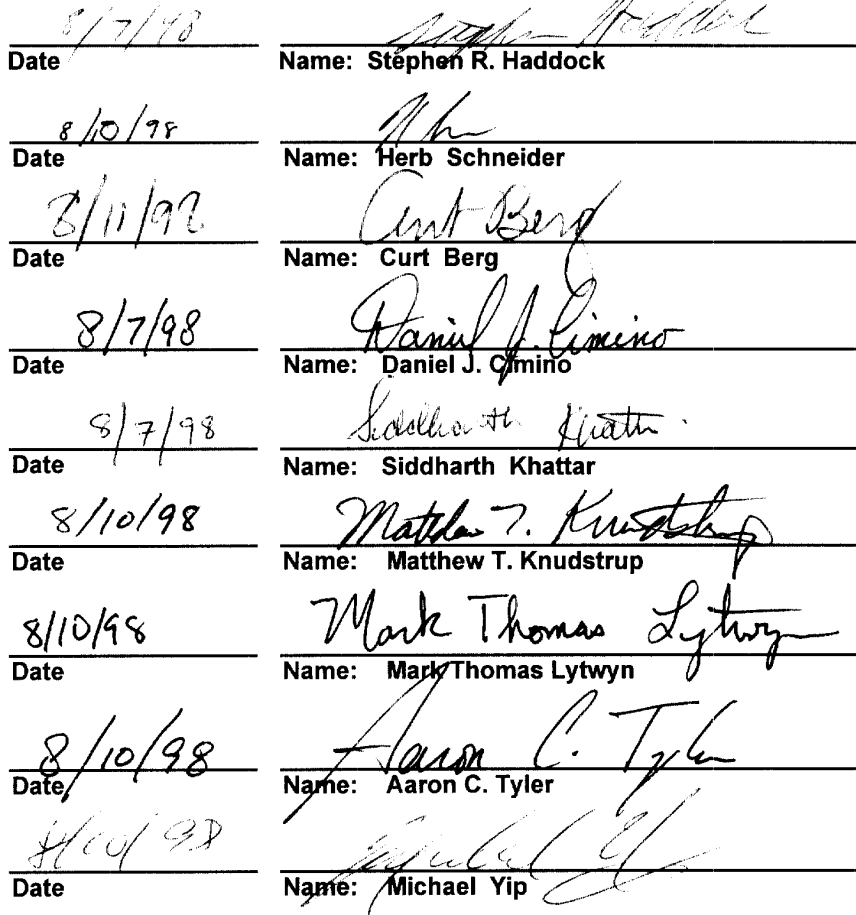 8/7/98 Stephen Haddock
Date Name: Stephen R. Haddock
8/10/98
Date Name: Herb Schneider
8/11/98 Curt Berg
Date Name: Curt Berg
8/7/98 Daniel J. Cimino
Date Name: Daniel J. Cimino
8/7/98 Siddharth Khattar
Date Name: Siddharth Khattar
8/10/98 Matthew T. Knudstrup
Date Name: Matthew T. Knudstrup
8/10/98 Mark Thomas Lytwyn
Date Name: Mark Thomas Lytwyn
8/10/98 Aaron C. Tyler
Date Name: Aaron C. Tyler
8/10/98
Date Name: Michael Yip